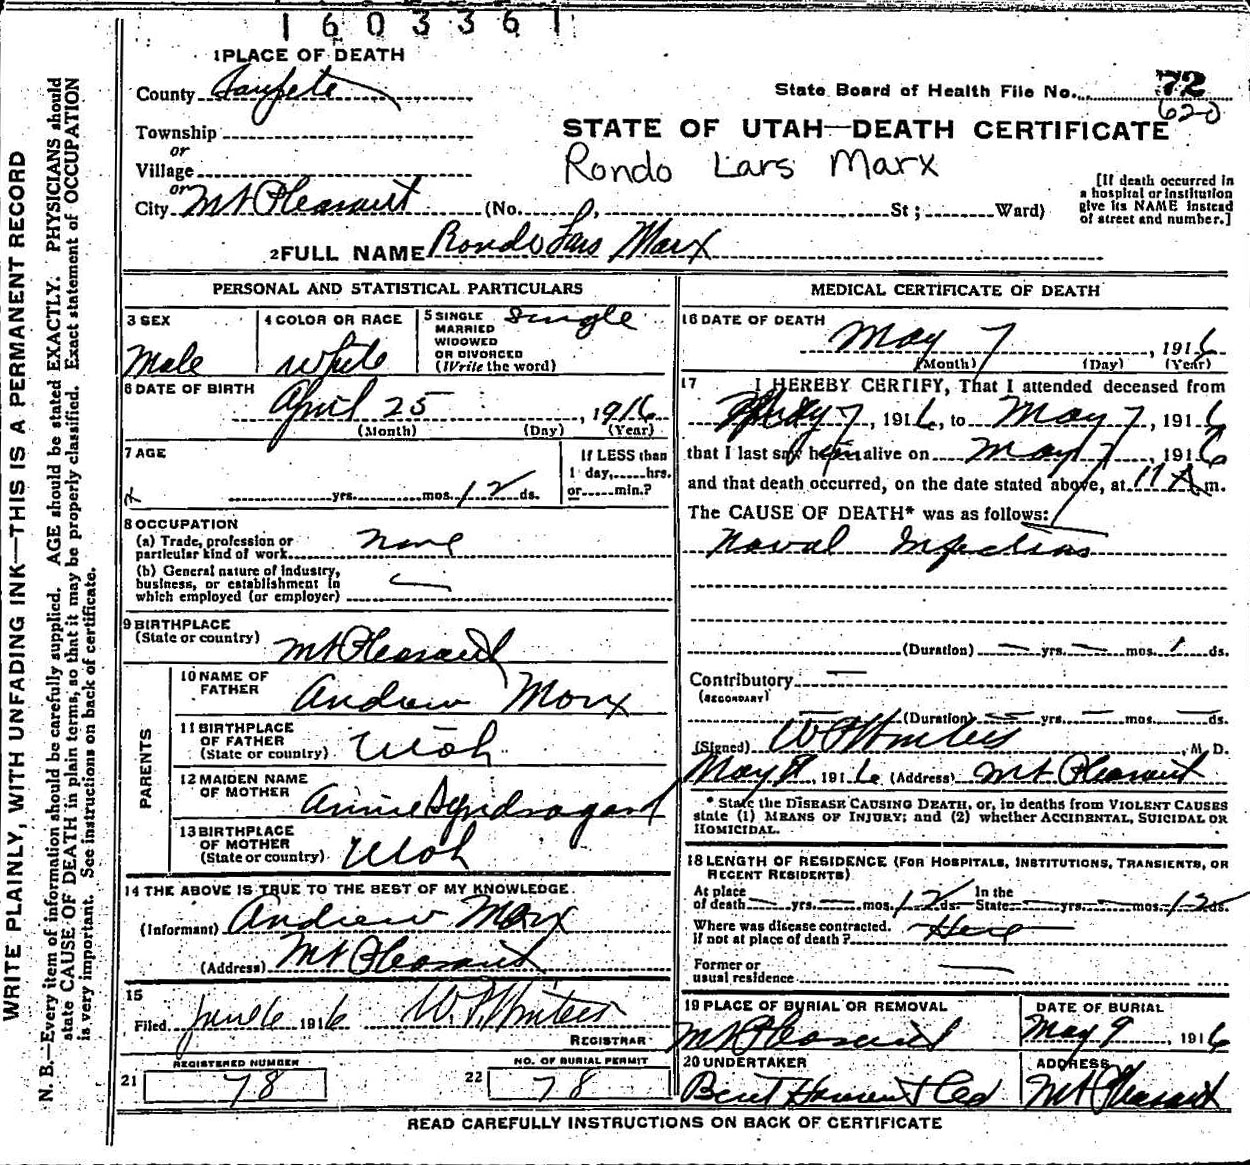 1603361
1 PLACE OF DEATH
County Sanpete
State Board of Health File No. 72
620
Township
or
STATE OF UTAH—DEATH CERTIFICATE
Village
Rondo Lars Marx
or
City Mt Pleasant (No. , St; Ward)
[If death occurred in
a hospital or institution
give its NAME instead
of street and number.]
2 FULL NAME Rondo Lars Marx
PERSONAL AND STATISTICAL PARTICULARS
3 SEX
Male
4 COLOR OR RACE
White
5 SINGLE
MARRIED
WIDOWED
OR DIVORCED
(Write the word)
Single
6 DATE OF BIRTH
April 25, 1916
(Month) (Day) (Year)
7 AGE
yrs. mos. 12 ds.
If LESS than
1 day, hrs.
or min.?
8 OCCUPATION
(a) Trade, profession or
particular kind of work None
(b) General nature of industry,
business, or establishment in
which employed (or employer) —
9 BIRTHPLACE
(State or country) Mt Pleasant
PARENTS
10 NAME OF
FATHER
Andrew Marx
11 BIRTHPLACE
OF FATHER
(State or country) Utah
12 MAIDEN NAME
OF MOTHER
Annie
13 BIRTHPLACE
OF MOTHER
(State or country) Utah
14 THE ABOVE IS TRUE TO THE BEST OF MY KNOWLEDGE.
(Informant) Andrew Marx
(Address) Mt Pleasant
15
Filed June 6 1916 W.P. Winters
REGISTRAR
REGISTERED NUMBER
21 78
NO. OF BURIAL PERMIT
22 78
MEDICAL CERTIFICATE OF DEATH
16 DATE OF DEATH
May 7, 1916
(Month) (Day) (Year)
17 I HEREBY CERTIFY, That I attended deceased from
May 7, 1916, to May 7, 1916
that I last saw him alive on May 7, 1916
and that death occurred, on the date stated above, at 11 A m.
The CAUSE OF DEATH* was as follows:
Naval Infection
(Duration) — yrs. — mos. 1 ds.
Contributory —
(SECONDARY)
(Duration) — yrs. — mos. — ds.
(Signed) W P Winters, M. D.
May 8, 1916 (Address) Mt Pleasant
* State the DISEASE CAUSING DEATH, or, in deaths from VIOLENT CAUSES
state (1) MEANS OF INJURY; and (2) whether ACCIDENTAL, SUICIDAL OR
HOMICIDAL.
18 LENGTH OF RESIDENCE (FOR HOSPITALS, INSTITUTIONS, TRANSIENTS, OR
RECENT RESIDENTS)
At place In the
of death — yrs. — mos. 12 ds. State — yrs. — mos. 12 ds.
Where was disease contracted.
If not at place of death? Here
Former or
usual residence —
19 PLACE OF BURIAL OR REMOVAL
Mt Pleasant
DATE OF BURIAL
May 9, 1916
20 UNDERTAKER
ADDRESS
Mt Pleasant
READ CAREFULLY INSTRUCTIONS ON BACK OF CERTIFICATE
WRITE PLAINLY, WITH UNFADING INK—THIS IS A PERMANENT RECORD
N. B.—Every item of information should be carefully supplied. AGE should be stated EXACTLY. PHYSICIANS should
state CAUSE OF DEATH in plain terms, so that it may be properly classified. Exact statement of OCCUPATION
is very important. See instructions on back of certificate.